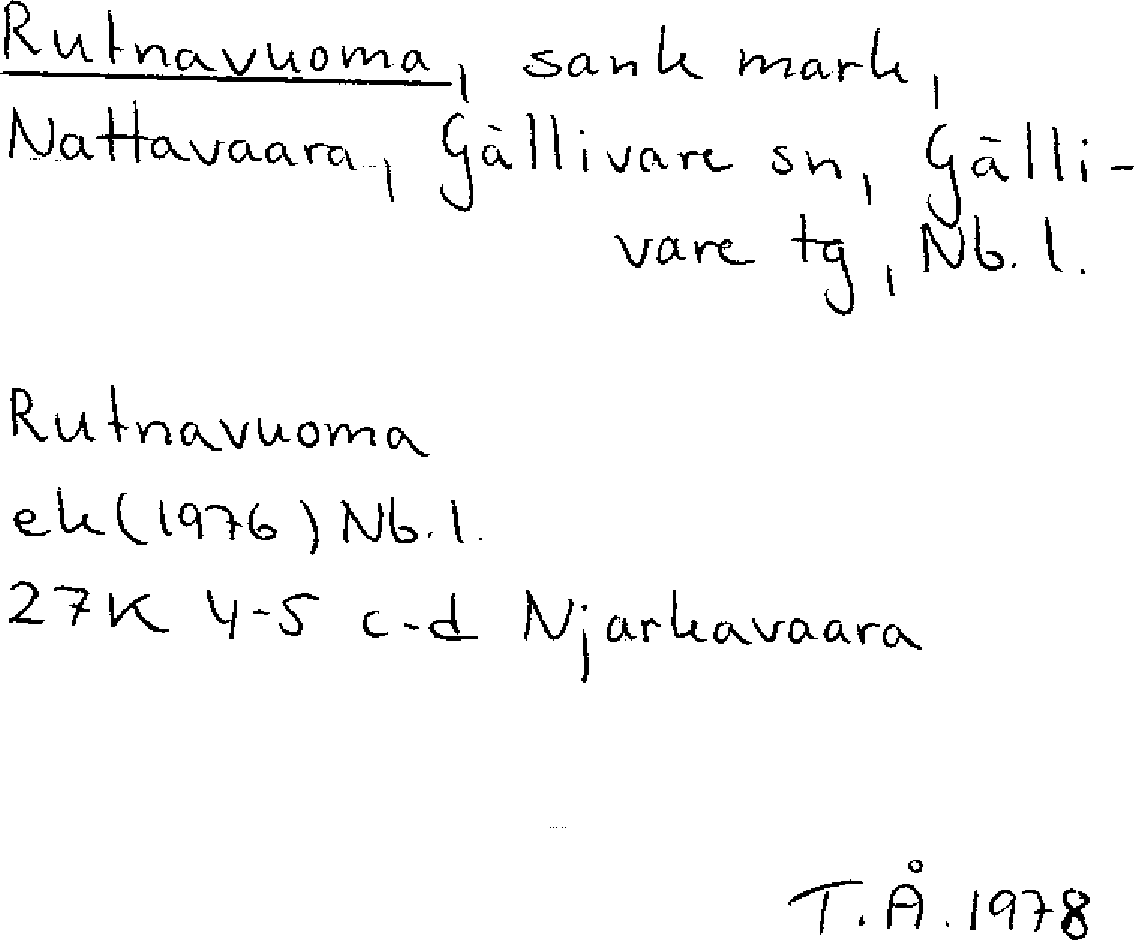 Rutnavuoma, sank mark,
Nattavaara, Gällivare sn, Gälli-
vare tg, Nb. l.
Rutnavuoma
ek (1976) Nb. l.
27K 4-5 c-d Njarkavaara
T.Å. 1978